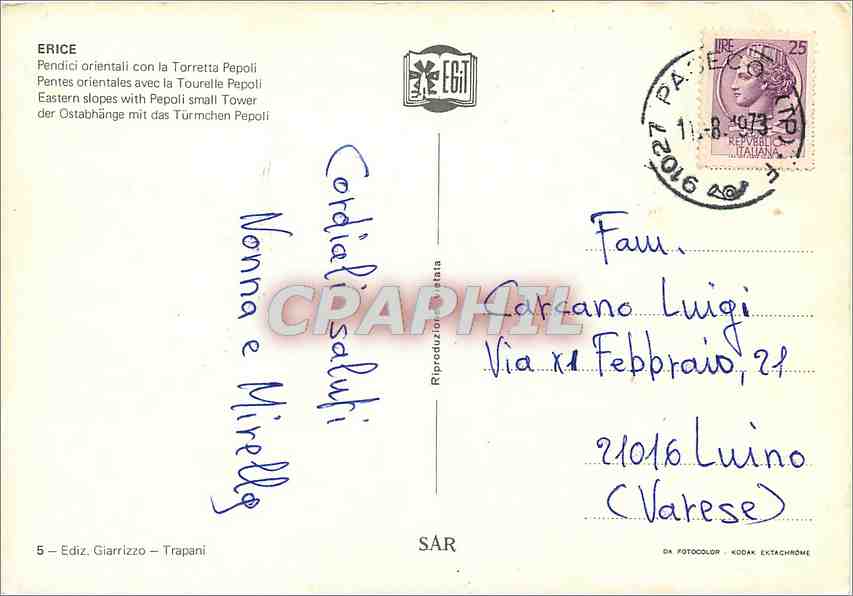 ERICE
Pendici orientali con la Torretta Pepoli
Pentes orientales avec la Tourelle Pepoli
Eastern slopes with Pepoli small Tower
der Ostabhänge mit das Türmchen Pepoli
EGIT
LIRE 25
REPVBBLICA
ITALIANA
91027 PACECO (TP)
-8.1973
Cordiali saluti
Nonna e Mirella
Riproduzione vietata
CPAPHIL
Fam.
Carcano Luigi
Via XI Febbraio, 21
21016 Luino
(Varese)
5 – Ediz. Giarrizzo – Trapani
SAR
DA FOTOCOLOR - KODAK EKTACHROME